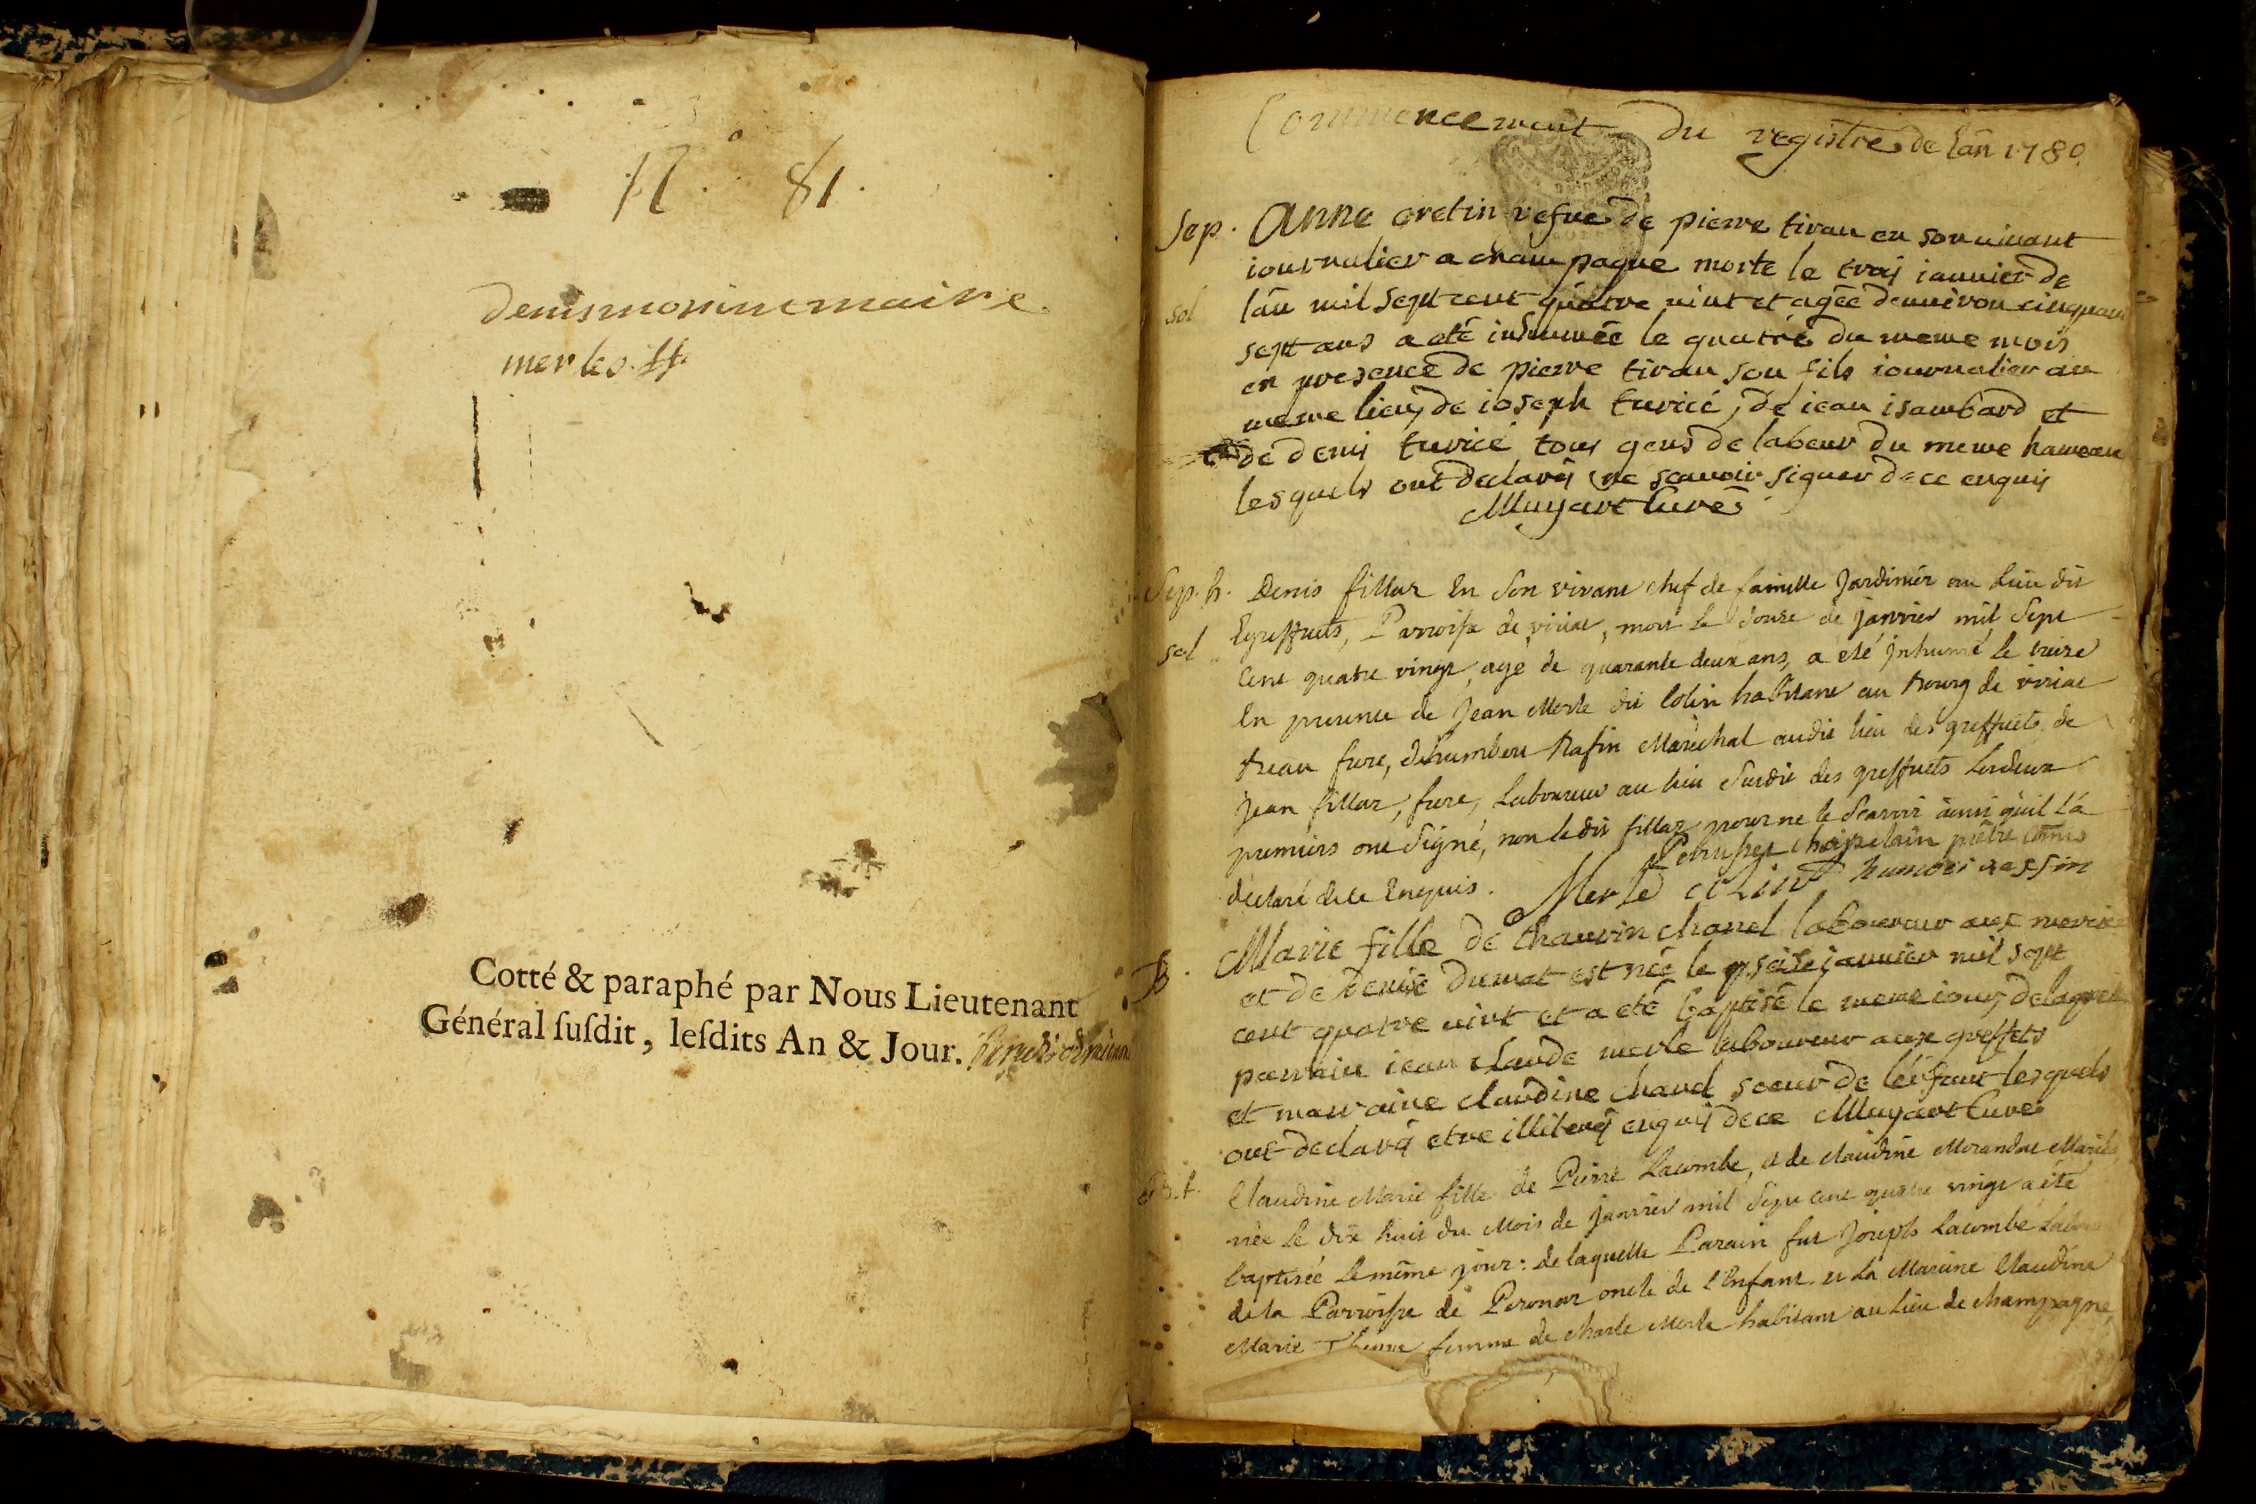 17 81.
denis morin maire
merles
Cotté & paraphé par Nous Lieutenant
Général ſuſdit, leſdits An & Jour.
Commencement du registre de l'an 1780
Sep. Anne cretin vefve de pierre tiran en son vivant
journalier a champagne morte le trois janvier de
sol l'an mil sept cent quatre vint et agée d'environ cinquante
sept ans a eté inhumée le quatre du meme mois
en presence de pierre tiran son fils journalier au
meme lieu, de joseph turicé, de jean isambard et
de denis turicé tous gens de labeur du meme hameau
lesquels ont declarés ne scavoir signer de ce enquis
Muyart Curé
Sep. h. Denis fillar En Son vivant chef de famille Jardinier au Lieu dit
Egreffiets, Parroisse de viriat, mort le Douze de janvier mil Sept
sol Cent quatre vingt, agé de quarante deux ans, a été Jnhumé le treize
En presence de Jean Merle dit Colin habitant au bourg de viriat
beau frere, d'humbert Rafin Maréchal audit lieu des greffiets de
Jean fillar, frere, Laboureur au lieu Susdit des greffiets Les deux
premiers ont Signé, non ledit fillar pour ne le Scavoir ainsi qu'il l'a
déclaré de ce Enquis. chapelain prêtre comis
Merle colin humbert raffin
B. Marie fille de thauvin chanel laboureur aux
et de denise dumat est née le seise janvier mil sept
cent quatre vint et a eté baptisé le meme jour, de laquelle
parrain jean claude merle laboureur aux greffets
et marraine claudine chanel soeur de l'enfant lesquels
ont declarés etre illiterés enquis de ce Muyart Curé
B. f. Claudine Marie fille de Pierre Lacombe, et de claudine Morandat Mariés
née le dix huit du Mois de janvier mil Sept cent quatre vingt a été
baptisée le même jour: de laquelle Parain fut Joseph Lacombe
de la Parroisse de Peronar oncle de l'Enfant et la Maraine Claudine
Marie femme de charle Merle habitant au Lieu de champagne